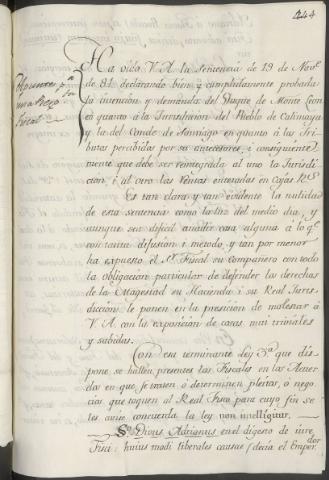 244
Ha visto V.A. la sentencia de 19 de Nov.e
de 81. declarando bien y cumplidamente probada
la intención y demanda del Duque de Monte Leon
en quanto a la Jurisdiccion del Pueblo de Calimaya
y la del Conde de Santiago en quanto á las Tri-
butas percibidos por su antecesores, i consiguiente
mente que debe ser reintegrada al uno la Jurisdi
cion, i al otro las Rentas enteradas en Cajas R.s
Es tan clara y tan evidente la nulidad
de esta sentencia como la luz del medio dia, y
aunque sea dificil añadir cosa alguna á lo q.e
con tanta difusion i metodo, y tan por menor
ha expuesto el S.r Fiscal su compañero con todo
la obligacion particular de defender los derechos
de la Magestad su Hacienda i su Real Juris-
diccion, le ponen en la precision de molestar á
V.A. con la exposicion de cosas mui triviales
y sabidas.
Con esa terminante Ley 3.a que dis-
pone se hallen presentes los Fiscales en los Acuer
dos en que se traten ó determinen pleitos, ó nego
cios que toquen al Real Fisco para cuyo fin se
les avise concuerda la ley non intelligitur.
Divus Adrianus en el digesto de iure
Fisci: huius modi liberales causas (decia el Emper.dor